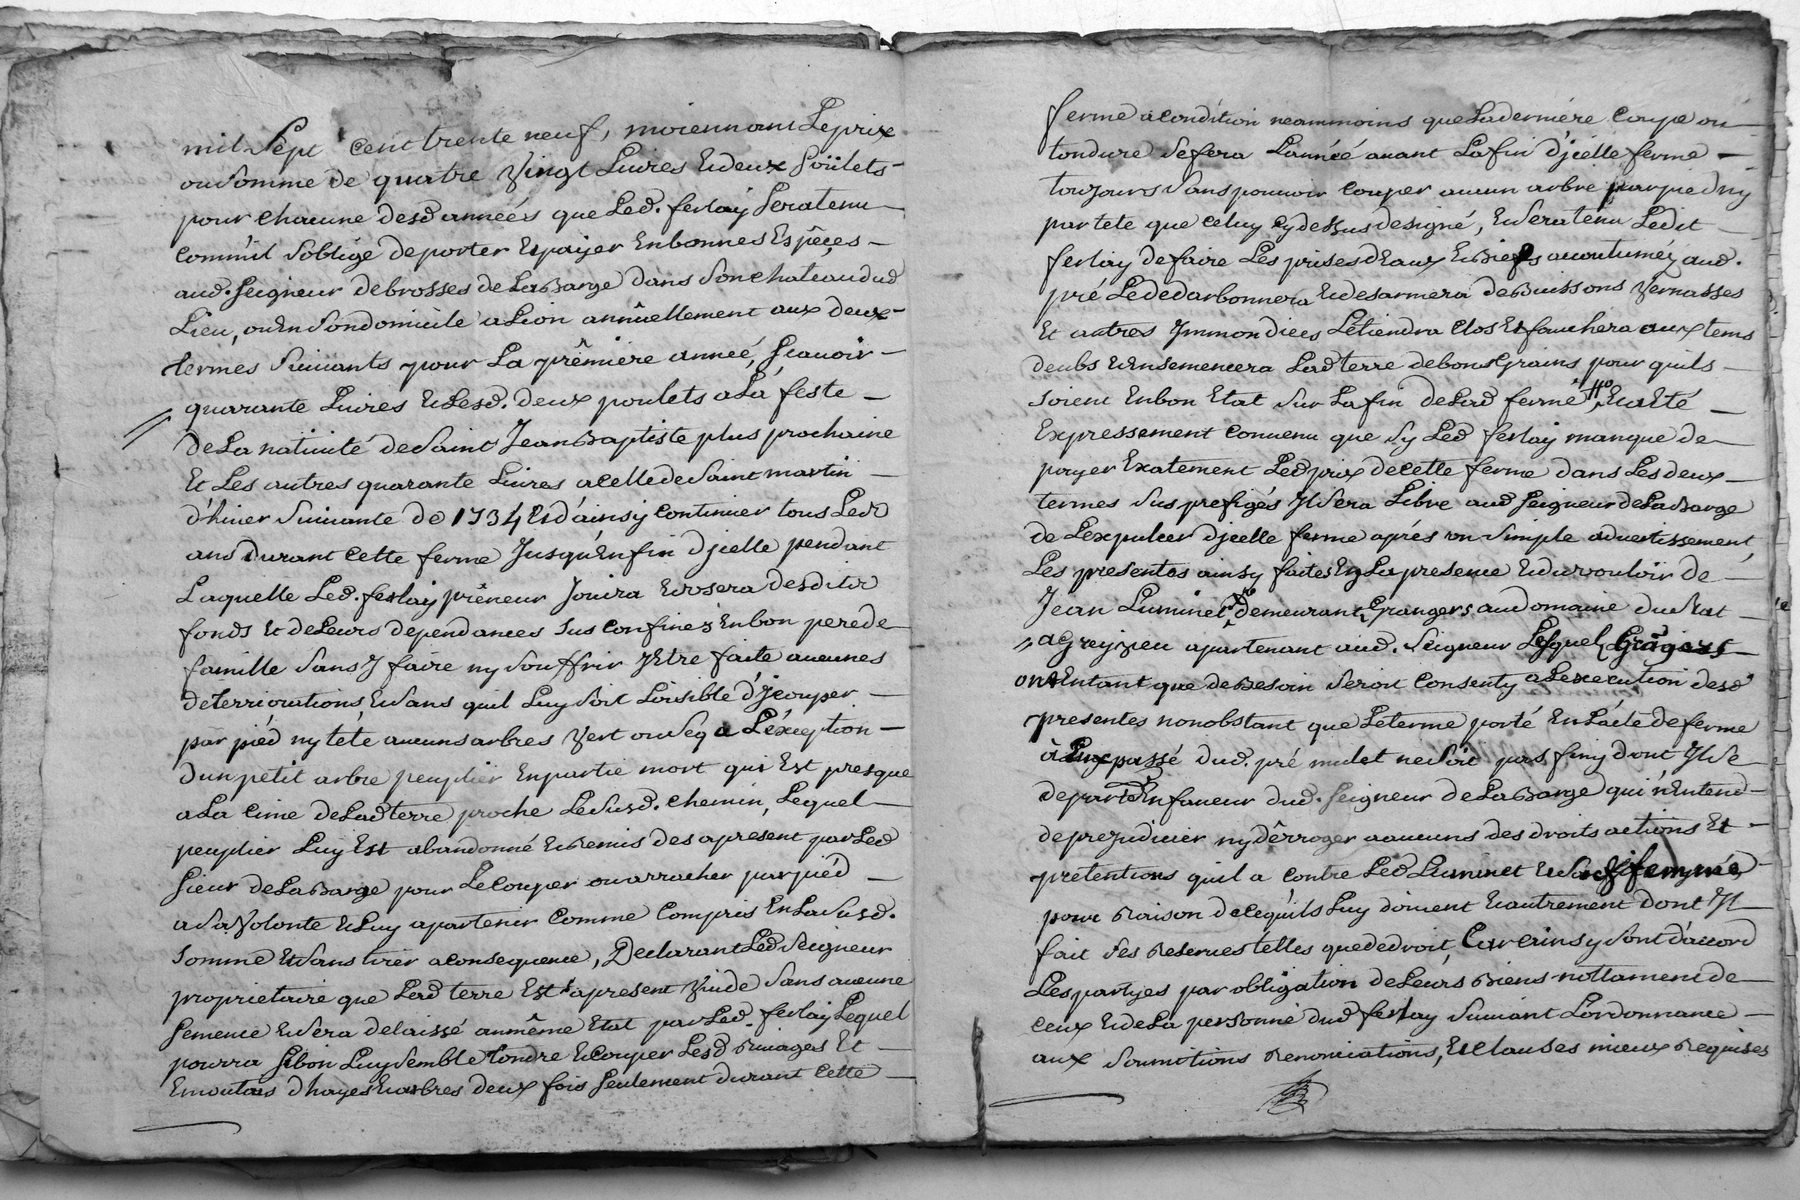 mil Sept cent trente neuf, moiennant Le prix
ou Somme de quatre Vingt Livres Et deux poulets
pour chacune desd années que Led. ferlay Sera tenu
comm'il Soblige de porter Et payer En bonnes Espêces
aud. Seigneur debrosses de LaBarge dans Son chateau dud
Lieu, ou En Son domicile a Lion annûellement aux deux
termes Suivants pour La prêmière année, Scavoir
quarante Livres Et Lesd. deux poulets a La feste
de La nativité de Saint Jean Baptiste plus prochaine
Et Les autres quarante Livres a celle de Saint martin
d'hiver Suivante de 1734 Et d'ainsy continuer tous Lesd
ans Durant cette ferme Jusqu'En fin d'jcelle pendant
Laquelle Led. ferlay prêneur Jouira Et usera desdits
fonds Et de Leurs dependances sus confinés En bon pere de
famille Sans J faire ny Souffrir Etre faite aucunes
déterriorations, Et Sans quil Luy Soit Loisible d'y couper
par pied ny tete aucuns arbres Vert ou Seq a L'éxception
dun petit arbre peuplier En partie mort qui Est presque
a La cime de Lad terre proche Le Susd. chemin, Lequel
peuplier Luy Est abandonné Et Remis des apresent par Led
Sieur de LaBarge pour Le Couper ou arracher par piéd
a Sa Volonte Et Luy apartenir Comme Compris En La Susd.
Somme Et Sans tirer a consequence, Declarant Led Seigneur
proprietaire que Lad terre Est apresent Vuide Sans aucune
Semence Et Sera delaissé au même Etat par Led. ferlay Lequel
pourra Si bon Luy Semble tondre Et Couper Lesd Rivages Et
Emoutais d'hayes Et arbres deux fois Seulement durant Cette
ferme a condition neammoins que La derniére Coupe ou
tondure Se fera L'année avant La fin d'jcelle ferme
toujours Sans pouvoir Couper aucun arbre par pied ny
par tete que Celuy Cy deSsus designé, Et Sera tenu Ledit
ferlay de faire Les prises d'Eaux Et Biefs accoutuméz aud.
pré Le dedarbonnera Et desarmera de Buissons Vernasses
Et autres Jmmondices Le tiendra Clos Et fauchera aux tems
deubs Et Ensemencera Lad terre de bons Grains pour quils
soient En bon Etat Sur La fin de Lad ferme, Et a Eté
Expressement Convenu que Sy Led ferlay manque de
payer Exatement Led prix de Cette ferme dans Les deux
termes Sus prefigés Jl Sera Libre aud Seigneur de LaBarge
de L'expulser d'jcelle ferme aprés un Simple advertissement,
Les presentes ainsy faites En La presence Et du vouloir de
Jean Luminet demeurant Grangers au domaine du Rat
a Grezizeu apartenant aud. Seigneur Lesquels Grāgers
ont Entant que de Besoin Seroit Consenty a L'execution desd
presentes nonobstant que Le terme porté En L'acte de ferme
à Eux passé dud. pré mulet ne Soit pas finy dont Jl Se
depart En faveur dud. Seigneur de LaBarge qui n'Entend
de prejudicier ny dêrroger a aucuns des droits actions Et
prétentions quil a Contre Led Luminet Et Sad femme
pour Raison de Ce qu'ils Luy doivent Et autrement dont Jl
fait Ses Reserves telles que de droit, Car ainsy Sont d'accord
Les partyes par obligation de Leurs Biens nottament de
ceux Et de La personne dud ferlay Suivant L'ordonnance
aux Soumitions Renonciations, Et Clauses mieux Requises